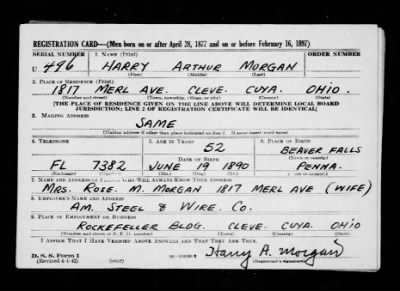 REGISTRATION CARD—(Men born on or after April 28, 1877 and on or before February 16, 1897)
SERIAL NUMBER 1. NAME (Print) ORDER NUMBER
U 496 HARRY ARTHUR MORGAN
(First) (Middle) (Last)
2. PLACE OF RESIDENCE (Print)
1817 MERL AVE. CLEVE. CUYA. OHIO.
(Number and street) (Town, township, village, or city) (County) (State)
[THE PLACE OF RESIDENCE GIVEN ON THE LINE ABOVE WILL DETERMINE LOCAL BOARD
JURISDICTION; LINE 2 OF REGISTRATION CERTIFICATE WILL BE IDENTICAL]
3. MAILING ADDRESS
SAME
[Mailing address if other than place indicated on line 2. If same insert word same]
4. TELEPHONE 5. AGE IN YEARS 6. PLACE OF BIRTH
52 BEAVER FALLS
DATE OF BIRTH (Town or county)
FL 7382 JUNE 19 1890 PENNA.
(Exchange) (Number) (Mo.) (Day) (Yr.) (State or country)
7. NAME AND ADDRESS OF PERSON WHO WILL ALWAYS KNOW YOUR ADDRESS
MRS. ROSE. M. MORGAN 1817 MERL AVE (WIFE)
8. EMPLOYER'S NAME AND ADDRESS
AM. STEEL & WIRE. CO.
9. PLACE OF EMPLOYMENT OR BUSINESS
ROCKEFELLER BLDG. CLEVE. CUYA. OHIO
(Number and street or R. F. D. number) (Town) (County) (State)
I AFFIRM THAT I HAVE VERIFIED ABOVE ANSWERS AND THAT THEY ARE TRUE.
D. S. S. Form 1
(Revised 4-1-42) (over) Harry A. Morgan
(Registrant's signature)